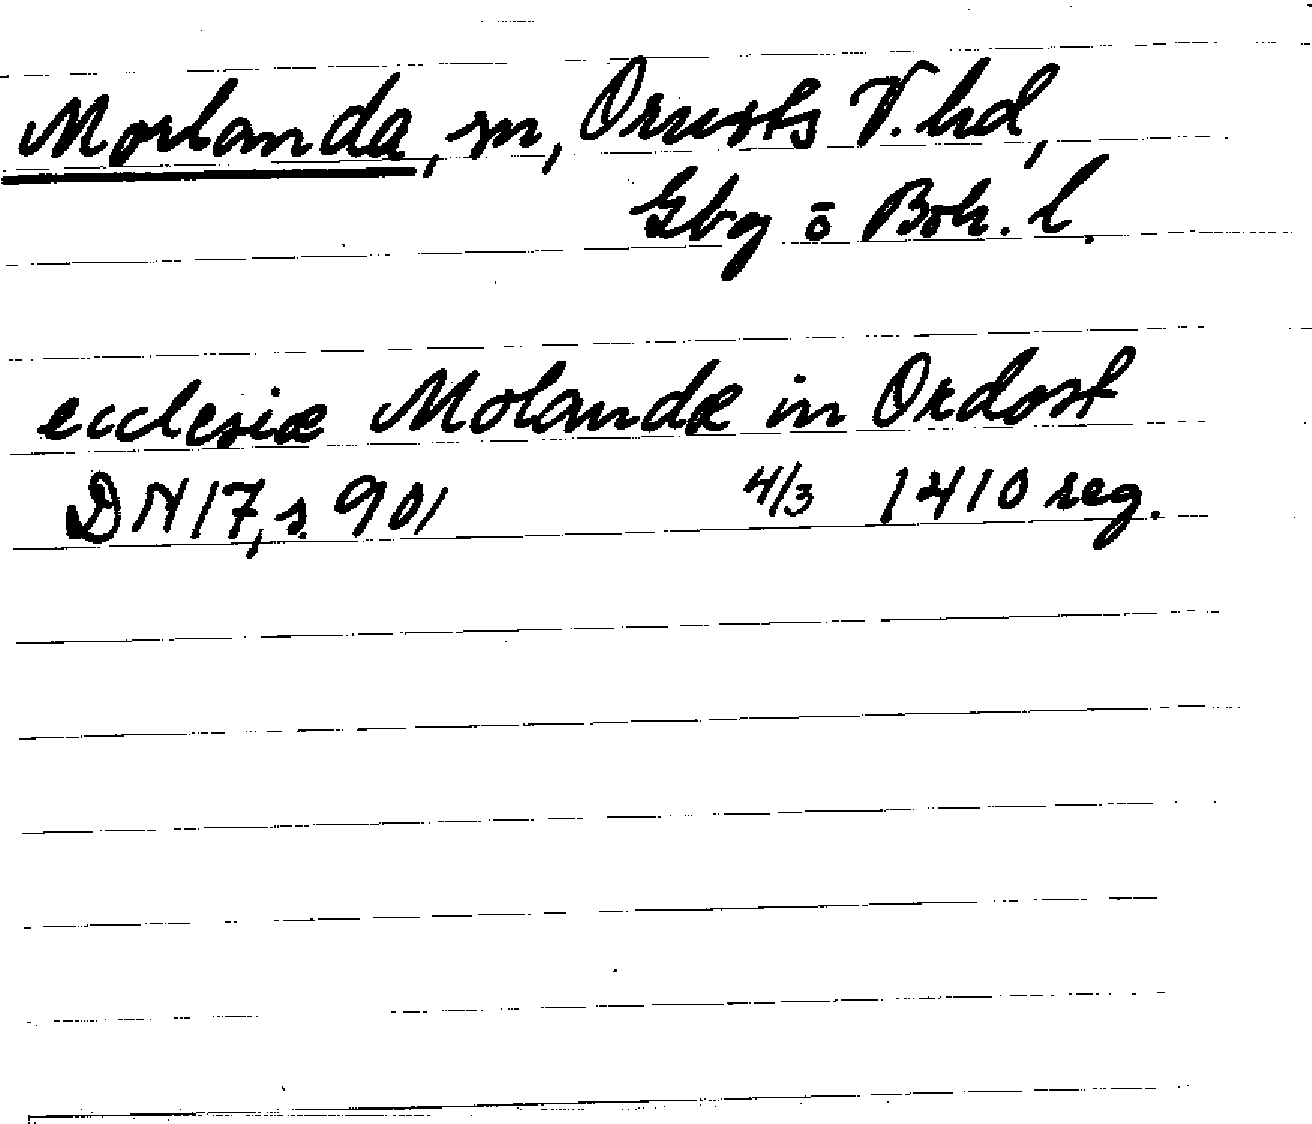 Morlanda, sn, Orusts V. hd,
Gbg ō Boh. l.
ecclesiæ Molandæ in Ordost
DN 17, s. 901 4/3 1410 reg.